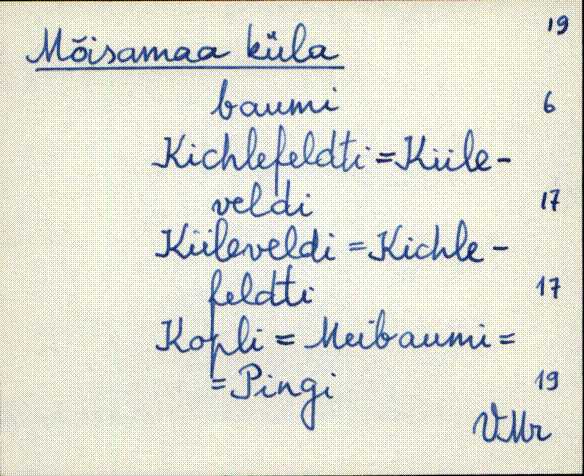 19
Mõisamaa küla
baumi 6
Kichlefeldti = Kiile-
veldi 17
Kiileveldi = Kichle-
feldti 17
Kopli = Meibaumi =
= Pingi 19
VMr